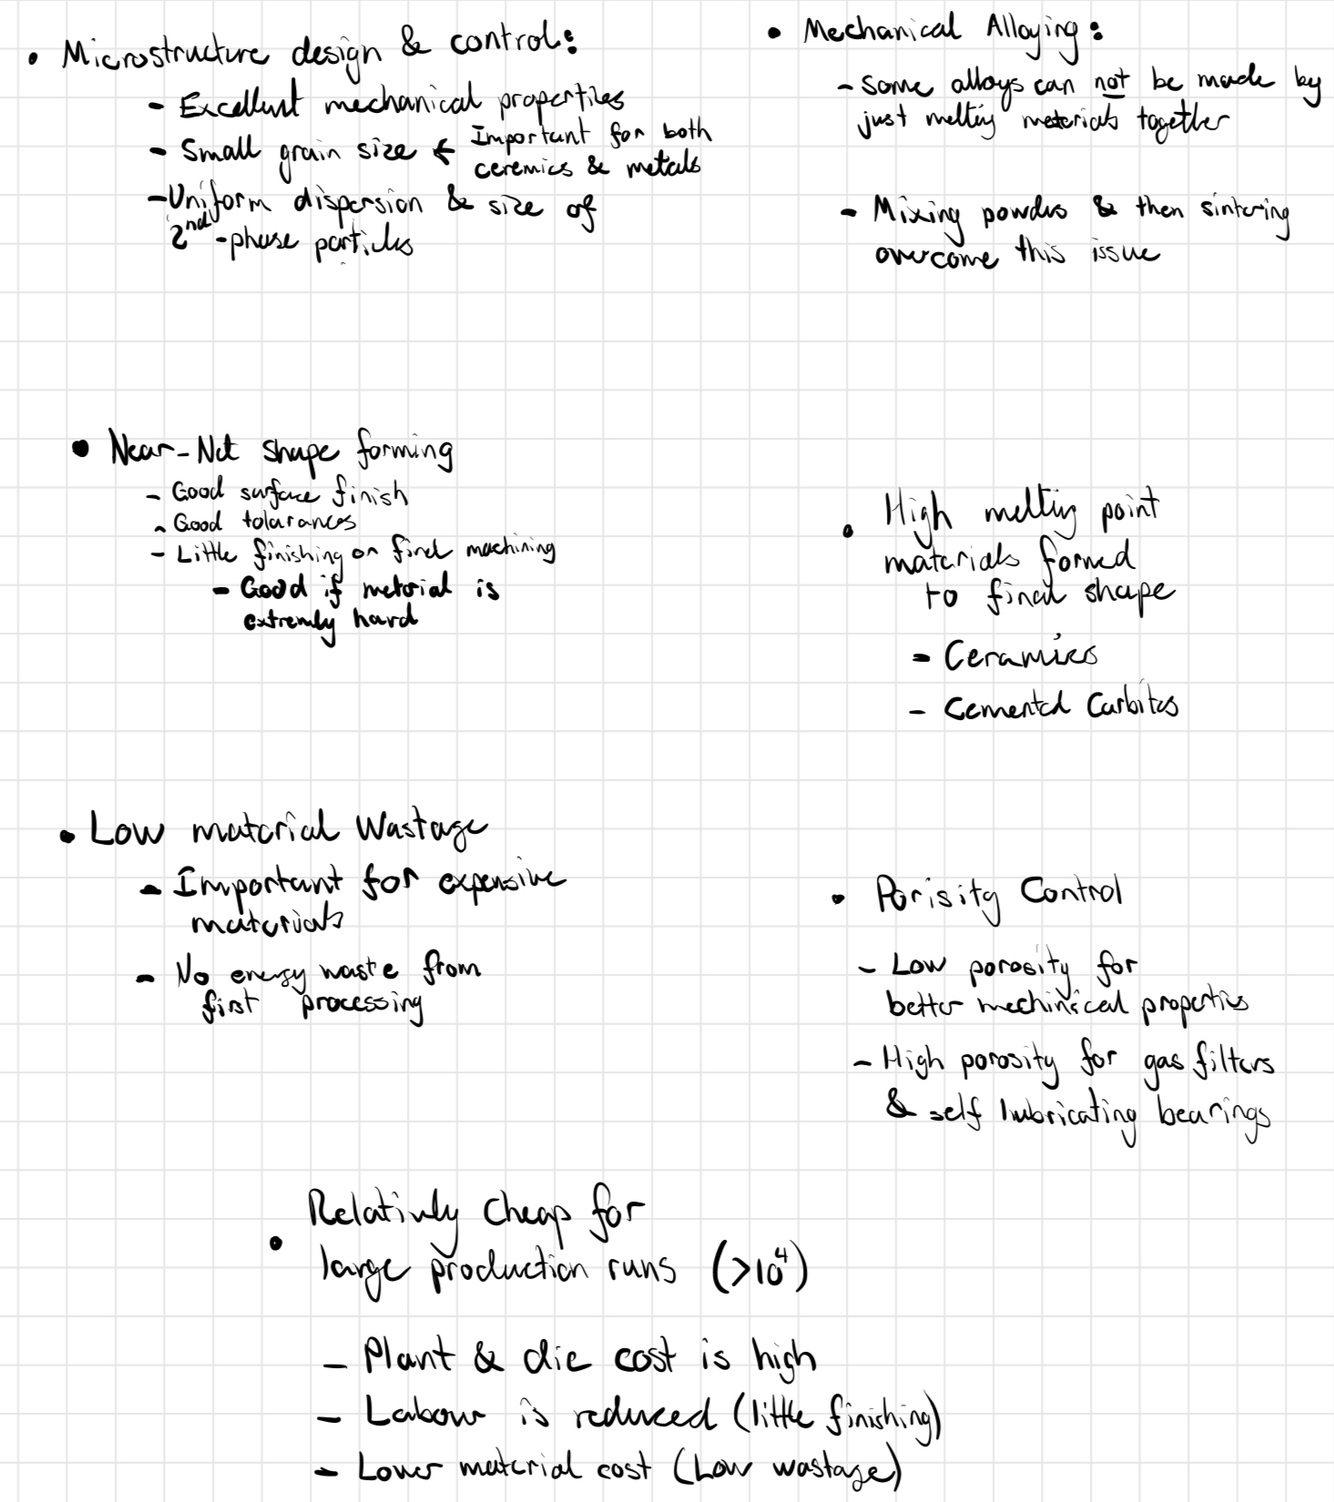 • Microstructure design & control:
- Excellent mechanical properties
- Small grain size ← Important for both
ceremics & metals
- Uniform dispersion & size of
2nd-phase particles
• Mechanical Alloying:
- Some alloys can not be made by
just melting materials together
- Mixing powders & then sintering
overcome this issue
• Near-Net shape forming
- Good surface finish
- Good tolarances
- Little finishing or final machining
- Good if material is
extremly hard
• High melting point
materials formed
to final shape
- Ceramics
- Cemented Carbites
• Low material Wastage
- Important for expensive
materials
- No energy waste from
first processing
• Porisity Control
- Low porosity for
better mechinical properties
- High porosity for gas filters
& self lubricating bearings
• Relativly Cheap for
large production runs (>10⁴)
- Plant & die cost is high
- Labour is reduced (little finishing)
- Lower material cost (Low wastage)